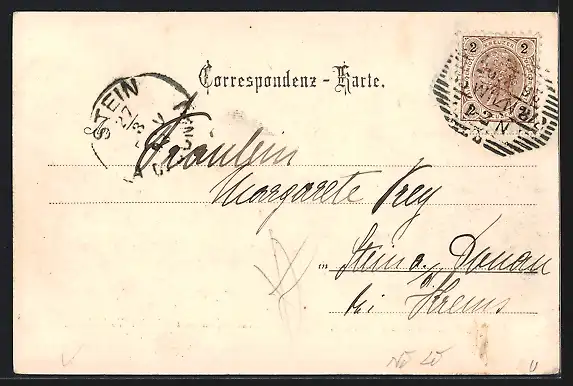 Correspondenz-Karte.
2 KREUZER 2
2 2
WIEN
STEIN
27/3
Fräulein
Margarete Frey
in Stein a. Donau
bei Krems